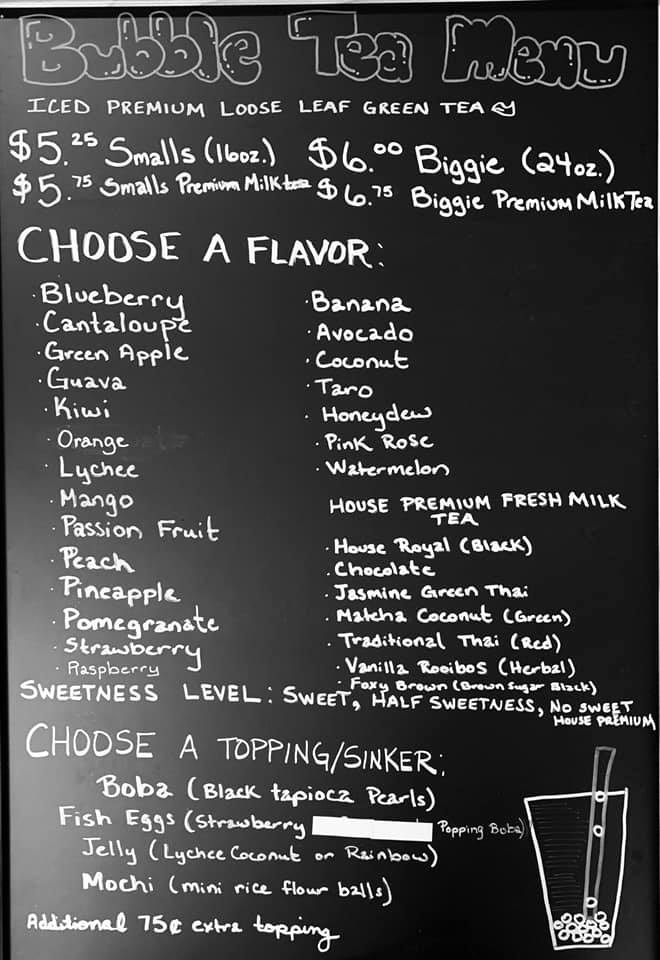 Bubble Tea Menu
ICED PREMIUM LOOSE LEAF GREEN TEA
$5.25 Smalls (16oz.) $6.00 Biggie (24oz.)
$5.75 Smalls Premium Milk tea $6.75 Biggie Premium Milk Tea
CHOOSE A FLAVOR:
· Blueberry
· Cantaloupe
· Green Apple
· Guava
· Kiwi
· Orange
· Lychee
· Mango
· Passion Fruit
· Peach
· Pineapple
· Pomegranate
· Strawberry
· Raspberry
· Banana
· Avocado
· Coconut
· Taro
· Honeydew
· Pink Rose
· Watermelon
HOUSE PREMIUM FRESH MILK
TEA
· House Royal (Black)
· Chocolate
· Jasmine Green Thai
· Matcha Coconut (Green)
· Traditional Thai (Red)
· Vanilla Rooibos (Herbal)
· Foxy Brown (Brown Sugar Black)
SWEETNESS LEVEL: SWEET, HALF SWEETNESS, NO SWEET
HOUSE PREMIUM
CHOOSE A TOPPING/SINKER:
Boba (Black tapioca Pearls)
Fish Eggs (Strawberry Popping Boba)
Jelly (Lychee Coconut or Rainbow)
Mochi (mini rice flour balls)
Additional 75¢ extra topping